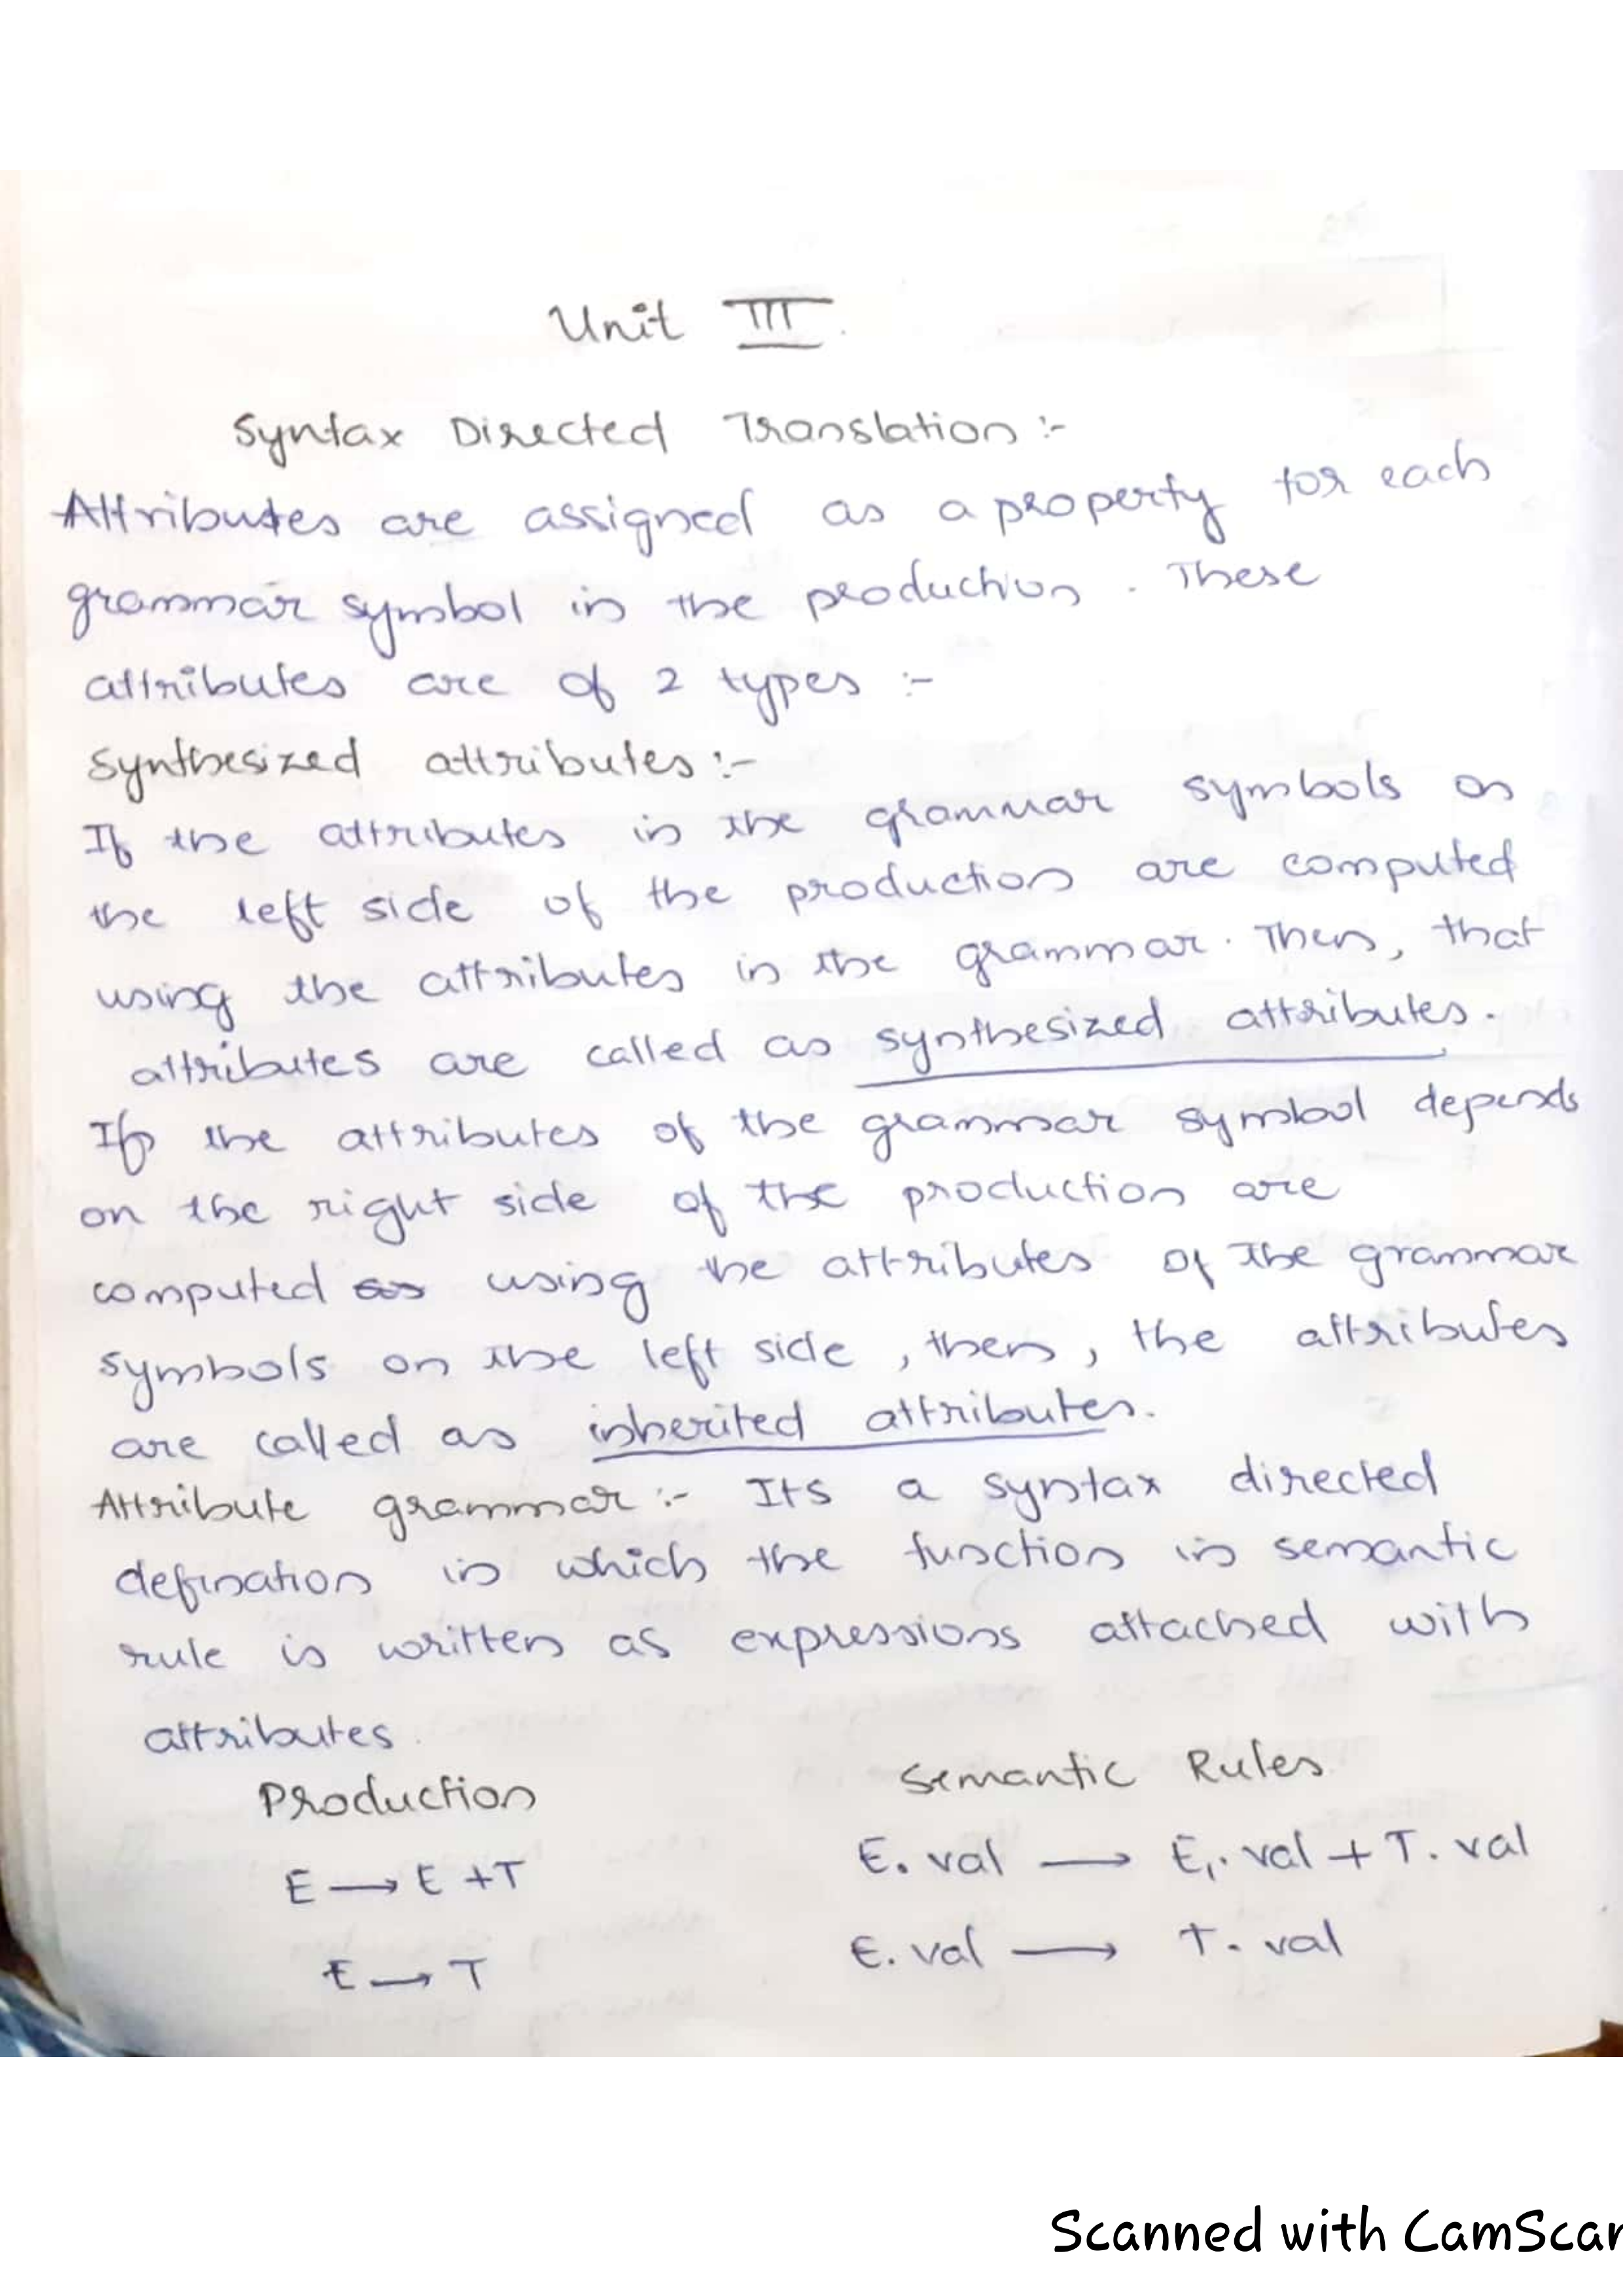 Unit III
Syntax Directed Translation :-
Attributes are assigned as a property for each
grammar symbol in the production. These
attributes are of 2 types :-
Synthesized attributes :-
If the attributes in the grammar symbols on
the left side of the production are computed
using the attributes in the grammar. Then, that
attributes are called as synthesized attributes.
If the attributes of the grammar symbol depends
on the right side of the production are
computed using the attributes of the grammar
symbols on the left side, then, the attributes
are called as inherited attributes.
Attribute grammar :- Its a syntax directed
defination in which the function in semantic
rule is written as expressions attached with
attributes.
Production Semantic Rules
E → E + T E. val → E₁. val + T. val
E → T E. val → T. val
Scanned with CamScan